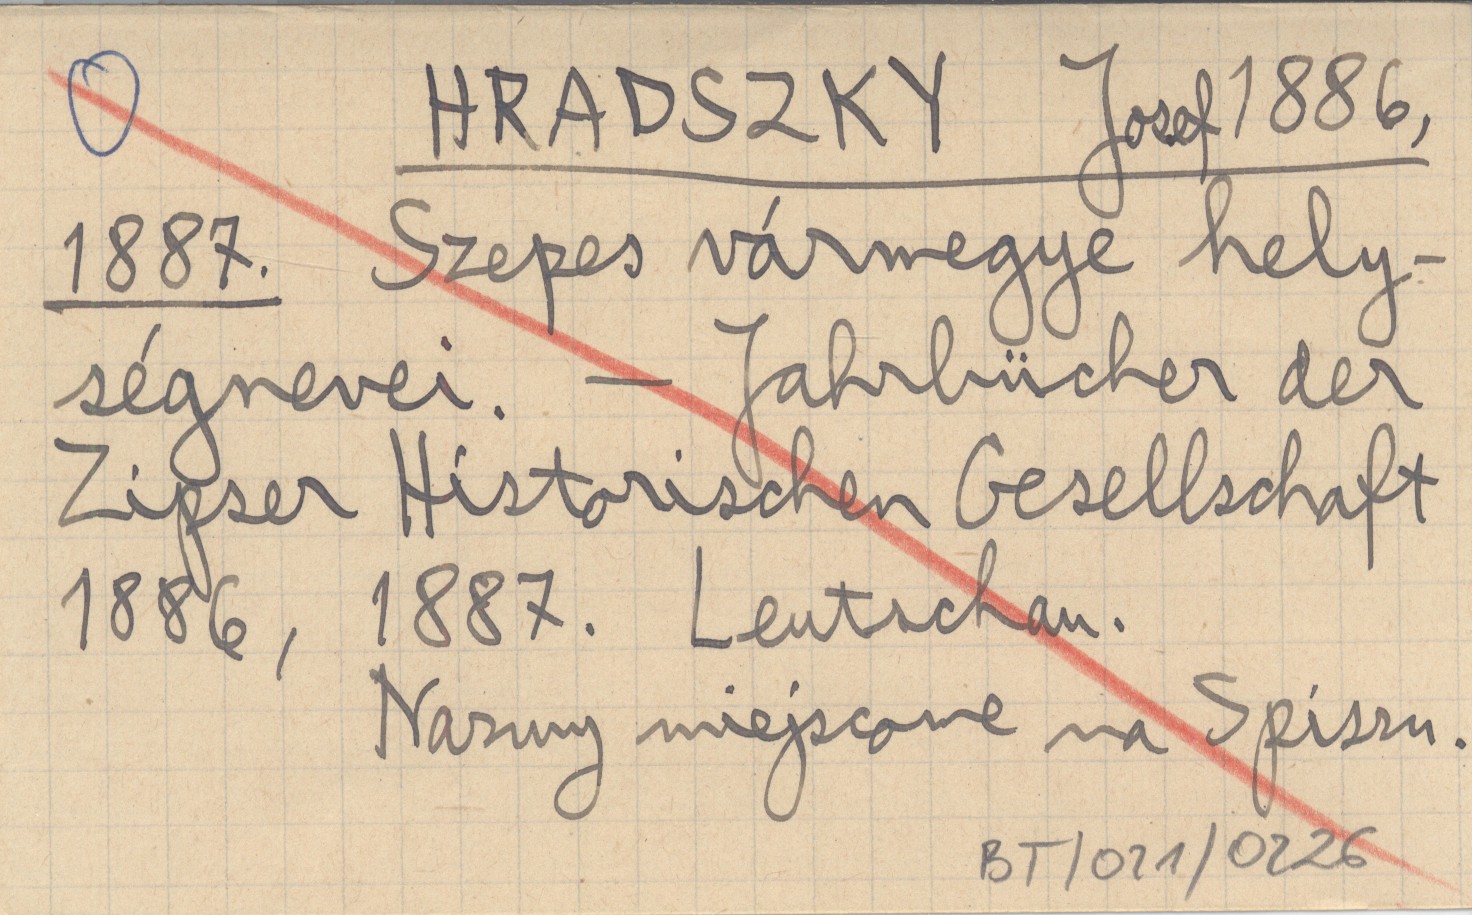 HRADSZKY Josef 1886,
1887. Szepes vármegye hely-
ségnevei. — Jahrbücher der
Zipser Historischen Gesellschaft
1886, 1887. Leutschau.
Nazwy miejscowe na Spiszu.
BT/021/0226